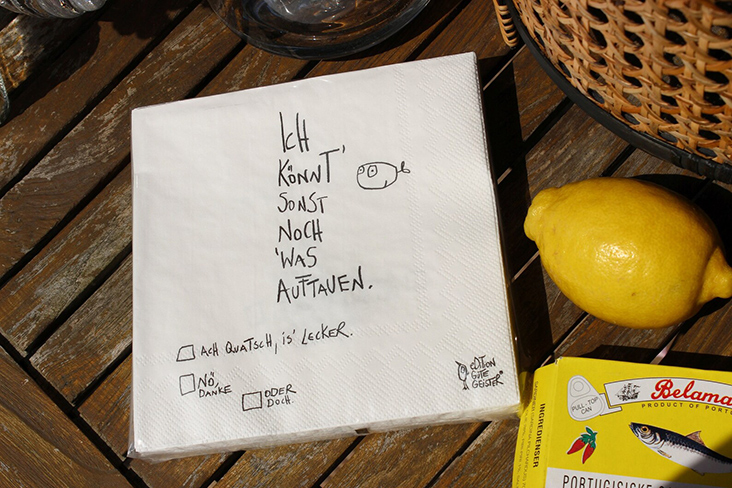 ICH
KÖNNT'
SONST
NOCH
'WAS
AUFTAUEN.
ACH QUATSCH, IS' LECKER.
NÖ,
DANKE
ODER
DOCH.
EDITION
GUTE
GEISTER
PULL TOP
CAN
Belama
PRODUCT OF PORT
INGREDIENSER
PORTUGISISKE